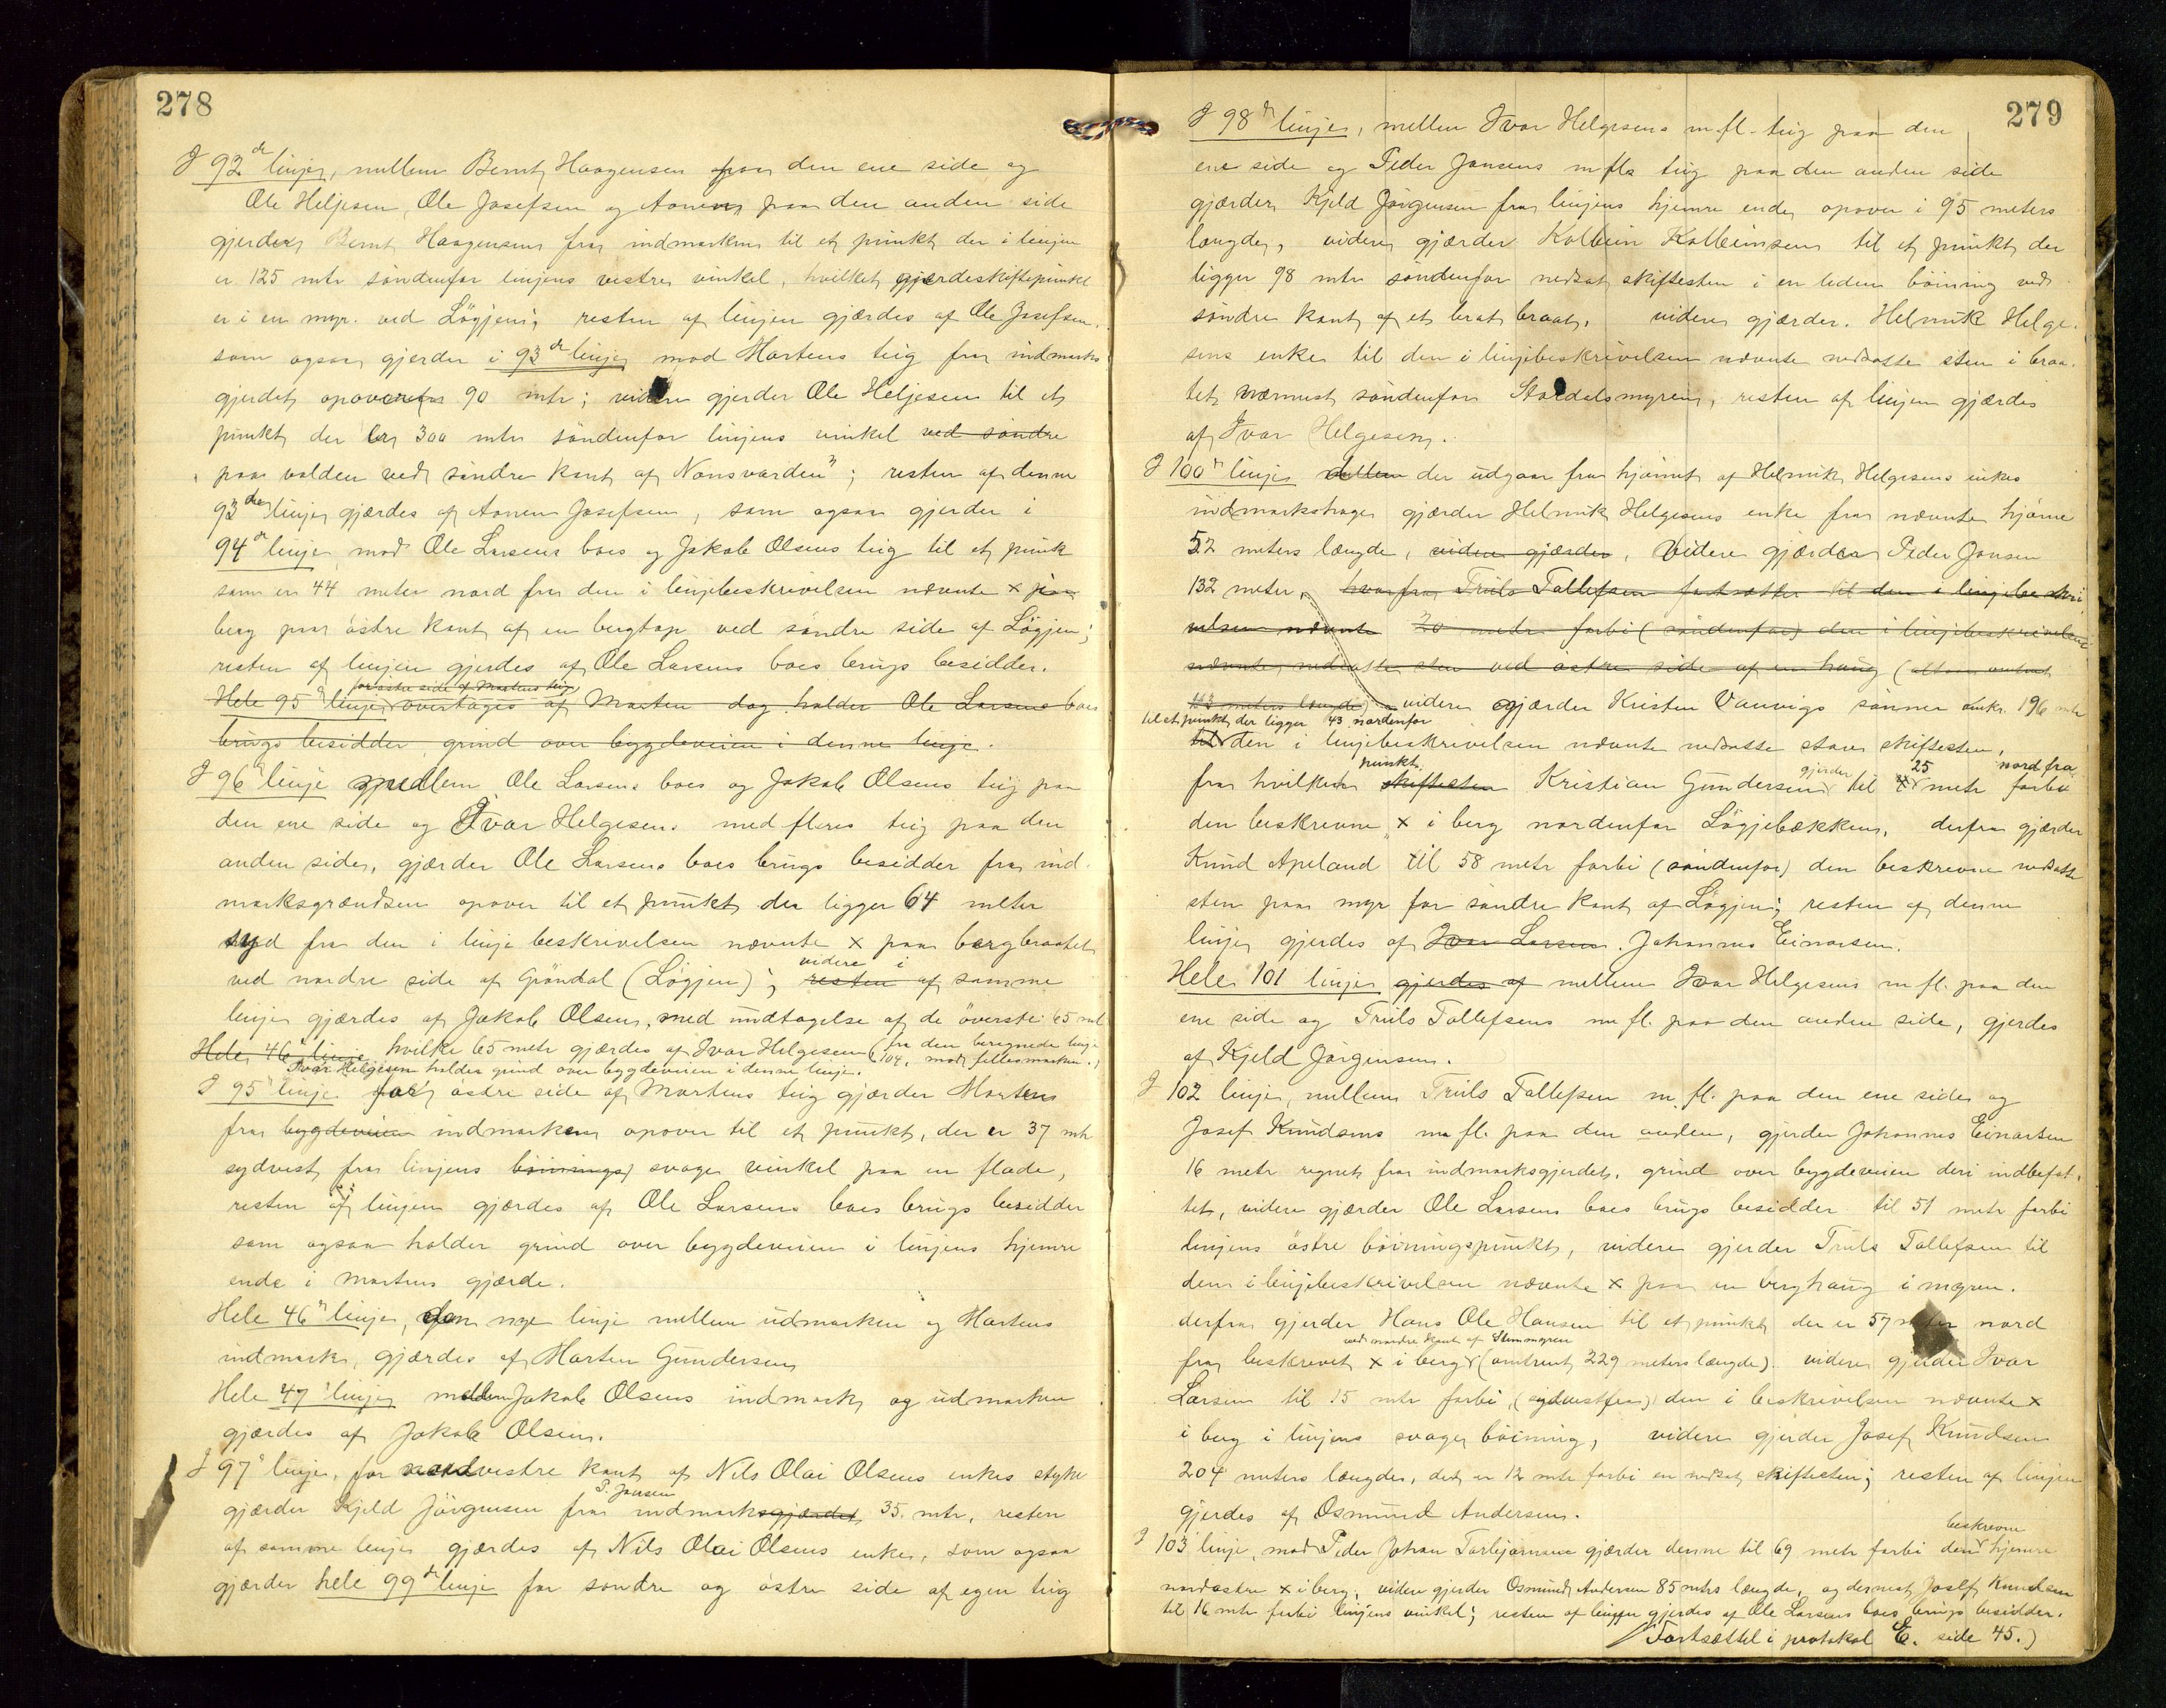 278
I 92de linje, mellem Bernt Haagensen paa den ene side og
Ole Heljesen, Ole Josefsen og Aanen paa den anden side
gjerder Bernt Haagensen fra indmarken til et punkt der i linjen
er 125 mtr söndenfor linjens vestre vinkel, hvilket gjærdeskiftepunkt
er i en myr ved Lögjen; resten af linjen gjærdes af Ole Josefsen,
som ogsaa gjerder i 93de linje mod Martens teig fra indmarks
gjerdet opover 90 mtr; videre gjerder Ole Heljesen til et
punkt der er 300 mtr söndenfor linjens vinkel ved söndre
paa volden ved söndre kant af Nonsvarden"; resten af denne
93de linje gjærdes af Aanen Josefsen, som ogsaa gjerder i
94de linje mod Ole Larsens boes og Jakob Olsens teig til et punk
som er 44 meter nord fra den i linjebeskrivelsen nævnte x paa
berg paa östre kant af en bergtop ved söndre side af Lögjen;
resten af linjen gjerdes af Ole Larsens boes brugs besidder.
for östre side af Martens teig
Hele 95de linje overtages af Morten dog holder Ole Larsens boes
brugs besidder grind over bygdeveien i denne linje.
I 96de linje mellem Ole Larsens boes og Jakob Olsens teig paa
den ene side og Ivar Helgesens med fleres teig paa den
anden side, gjærder Ole Larsens boes brugs besidder fra ind-
marksgrændsen opover til et punkt der ligger 64 meter
syd fra den i linje beskrivelsen nævnte x paa bergbraatet
videre i
ved nordre side af Gröndal (Lögjen); resten af samme
linje gjærdes af Jakob Olsen, med undtagelse af de överste 65 mtr
Hele 46de linje hvilke 65 metr gjærdes af Ivar Helgesen (fra den beregnede linje
104, mod fellesmarken.)
Ivar Helgesen holder grind over bygdeveien i denne linje.
I 95de linje for östre side af Martens teig gjærder Morten
fra bygdeveien indmarken opover til et punkt, der er 37 mtr
sydvest fra linjens böinings svage vinkel paa en flade,
resten af linjen gjærdes af Ole Larsens boes brugs besidder
som ogsaa holder grind over bygdeveien i linjens hjemre
ende i Martens gjærde.
Hele 46de linje, den nye linje mellem udmarken og Martens
indmark, gjærdes af Morten Gundersen
Hele 47de linje mellem Jakob Olsens indmark og udmarken
gjærdes af Jakob Olsen.
I 97de linje, for nordvestre kant af Nils Olai Olsens enkes stykke
P. Jansen
gjærder Kjeld Jörgensen fra indmarksgjærdet 35 mtr, resten
af samme linje gjærdes af Nils Olai Olsens enke, som ogsaa
gjærder hele 99de linje for söndre og östre side af egen teig
279
I 98de linje, mellem Ivar Helgesens m fl. teig paa den
ene side og Peder Jansens m fls teig paa den anden side
gjærder Kjeld Jörgensen fra linjens hjemre ende opover i 95 meters
længde, videre gjærder Kolbein Kolbeinsen til et punkt der
ligger 98 mtr söndenfor nedsat skiftesten i en liden böining ved
söndre kant af et brat braat, videre gjærder Helmik Helge-
sens enke til den i linjebeskrivelsen nævnte nedsatte sten i braa-
tet nærmest söndenfor Stordalsmyren, resten af linjen gjærdes
af Ivar Helgesen.
I 100de linje mellem der udgaar fra hjörnet af Helmik Helgesens enkes
indmarkshage gjærder Helmik Helgesens enke fra nævnte hjörne
52 meters længde, videre gjærder, Videre gjærder Peder Jansen
132 meter, hvorfra Truls Tollefsen fortsætter til den i linjebeskri
velsen nævnte 20 metr forbi (söndenfor) den i linjebeskrivelsen
nævnte nedsatte sten ved östre side af en haug (altsaa omtrent
113 meters længde) videre gjærder Kristen Vanvigs sönner omkr. 196 mtr
til et punkt der ligger 43 nordenfor
til den i linjebeskrivelsen nævnte nedsatte store skiftesten,
punkt gjerder 25 nord fra
fra hvilken skiftesten Kristian Gundersen til metr forbi
den beskrevne x i berg nordenfor Lögjebækken, derfra gjærder
Knud Apeland til 58 metr forbi (söndenfor) den beskrevne nedsatte
sten paa myr for söndre kant af Lögjen; resten af denne
linje gjerdes af Ivar Larsen. Johannes Einarsen.
Hele 101 linje gjerdes af mellem Ivar Helgesens m fl. paa den
ene side og Truls Tollefsens m fl. paa den anden side, gjerdes
af Kjeld Jörgensen.
I 102 linje, mellem Truls Tollefsen m. fl. paa den ene side og
Josef Knudsens m fl. paa den anden, gjerder Johannes Einarsen
16 metr regnet fra indmarksgjerdet, grind over bygdeveien deri indbefat-
tet, videre gjærder Ole Larsens boes brugs besidder til 51 metr forbi
linjens östre böiningspunkt, videre gjerder Truls Tollefsen til
den i linjebeskrivelsen nævnte x paa en berghaug i myren.
derfra gjerder Hans Ole Hansen til et punkt der er 57 meter nord
ved nordre kant af Stemmyren
fra beskrevet x i berg (omtrent 229 meters længde). videre gjerder Ivar
Larsen til 15 mtr forbi (sydvestfra) den i beskrivelsen nævnte x
i berg i linjens svage böining, videre gjerder Josef Knudsen
204 meters længde, det er 12 mtr forbi en nedsat skiftesten; resten af linjen
gjerdes af Osmund Andersen.
beskrevne
I 103 linje, mod Peder Johan Torbjörnsens gjærder denne til 69 metr forbi den hjemre
nordöstre x i berg, videre gjerder Osmund Andersen 85 mtrs længde, og dernest Josef Knudsen
til 16 mtr forbi linjens vinkel; resten af linjen gjerdes af Ole Larsens boes brugs besidder.
(Fortsættet i protokol E. side 45.)